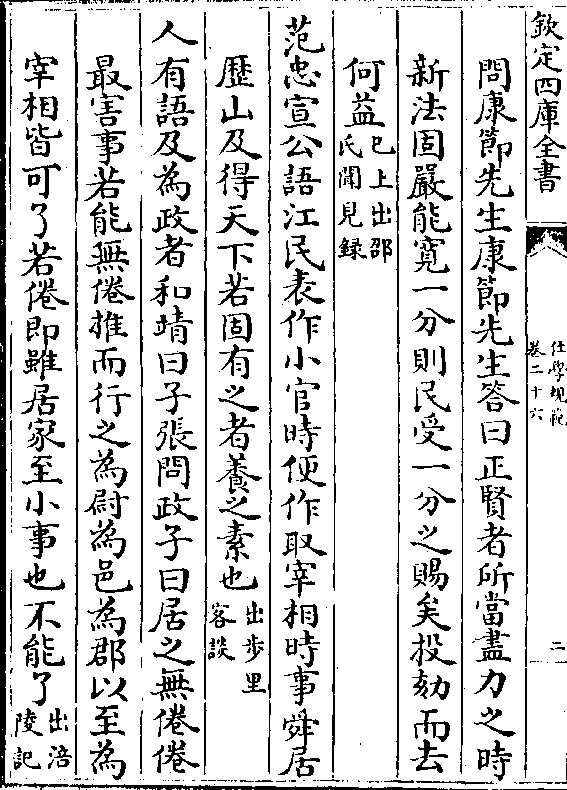 欽定四庫全書
仕學規範
卷二十六
二
問康節先生康節先生答曰正賢者所當盡力之時
新法固嚴能寛一分則民受一分之賜矣投劾而去
何益已上出邵
氏聞見録
范忠宣公語江民表作小官時便作取宰相時事舜居
歴山及得天下若固有之者養之素也出步里
客談
人有語及為政者和靖曰子張問政子曰居之無倦倦
最害事若能無倦推而行之為尉為邑為郡以至為
宰相皆可了若倦即雖居家至小事也不能了出涪
陵記